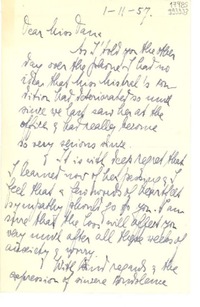 1-11-57.
Dear Miss Dana
As I told you the other
day over the phone I had no
idea that Miss Mistral's con-
dition had deteriorated so much
since we last saw her at the
office & had really become
so very serious since.
It is with deep regret that
I learned now of her passing & I
feel that a few words of heartfelt
sympathy should go to you. I am
sure that the loss will affect you
very much after all these weeks of
anxiety & worry.
With kind regards & the
expression of sincere condolence